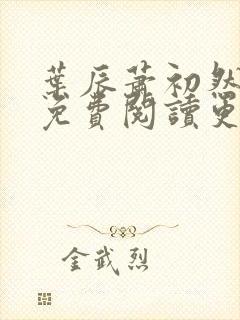 葉辰蕭初然
免費閱讀更
金武烈